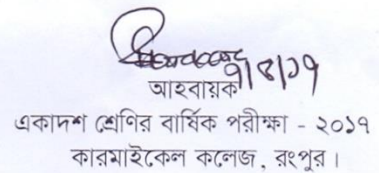 ৭/৪/১৭
আহবায়ক
একাদশ শ্রেণির বার্ষিক পরীক্ষা - ২০১৭
কারমাইকেল কলেজ, রংপুর।